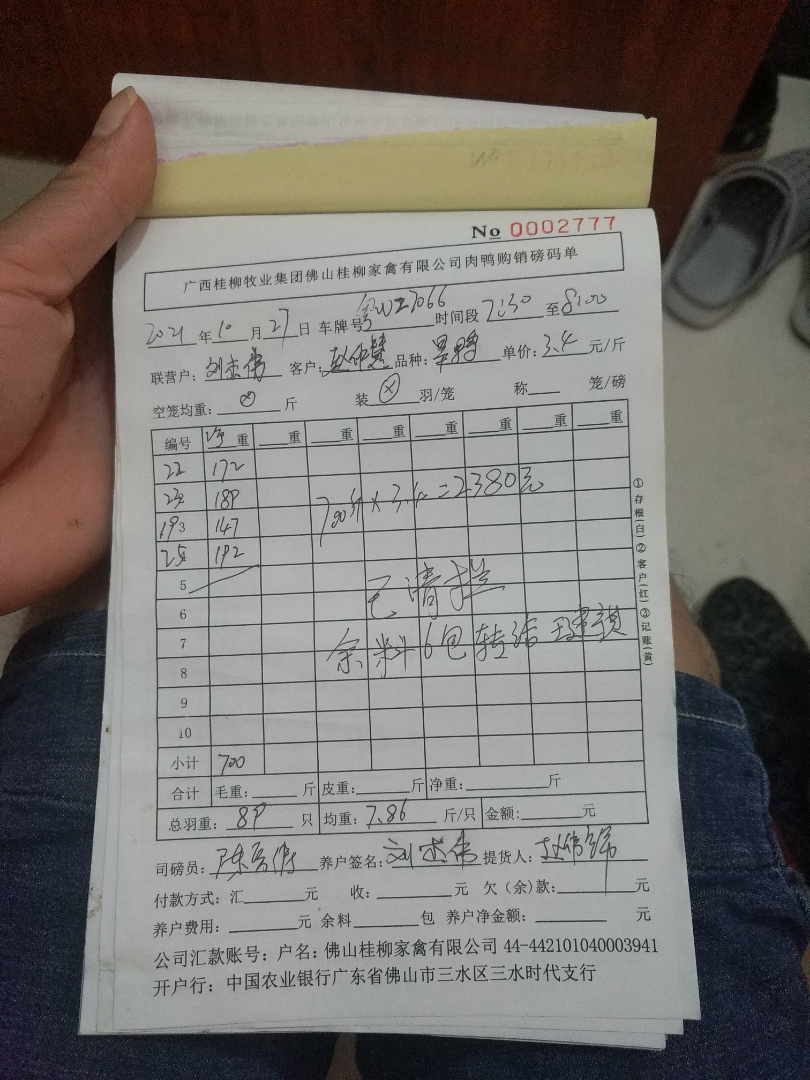 No 0002777
广西桂柳牧业集团佛山桂柳家禽有限公司肉鸭购销磅码单
2021年10月27日 车牌号 WZ7066 时间段 7:30 至 8:00
联营户: 刘志伟 客户: 品种: 单价: 3.4 元/斤
空笼均重: 斤 装 羽/笼 称 笼/磅
编号 净重 重 重 重 重 重 重 重
22 172
23 189
193 147
25 192
700斤×3.4=2380元
5
已清栏
6
7
余料6包转给
8
9
10
小计 700
合计 毛重: 斤 皮重: 斤 净重: 斤
总羽重: 89 只 均重: 7.86 斤/只 金额: 元
司磅员: 养户签名: 刘志伟 提货人:
付款方式: 汇 元 收: 元 欠(余)款: 元
养户费用: 元 余料 包 养户净金额: 元
公司汇款账号: 户名: 佛山桂柳家禽有限公司 44-442101040003941
开户行: 中国农业银行广东省佛山市三水区三水时代支行
①存根(白)②客户(红)③记账(黄)